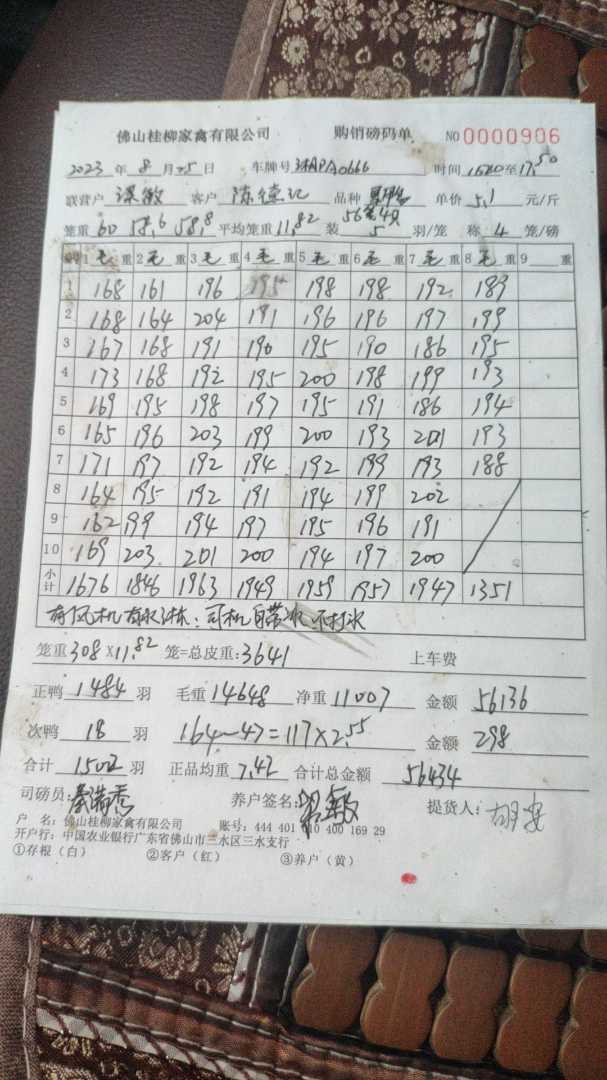 佛山桂柳家禽有限公司 购销磅码单 NO 0000906
2023 年 8 月 25 日 车牌号 0666 时间 至 17:50
联营户 客户 陈德记 品种 单价 5.1 元/斤
笼重 60 58.6 58.8 平均笼重 11.82 装 5 羽/笼 称 4 笼/磅
1 毛 重 2 毛 重 3 毛 重 4 毛 重 5 毛 重 6 毛 重 7 毛 重 8 毛 重 9 重
1 168 161 196 195 198 198 192 189
2 168 164 204 191 196 196 197 199
3 167 168 191 190 195 190 186 195
4 173 168 192 195 200 198 199 193
5 169 195 198 197 195 191 186 194
6 165 196 203 199 200 193 201 193
7 171 197 192 194 192 199 193 188
8 164 195 192 191 194 199 202
9 162 199 194 197 195 196 191
10 169 203 201 200 194 197 200
小计 1676 1846 1963 1949 1959 1957 1947 1351
有风机 有水淋：司机自带冰 不打冰
笼重 308 X 11.82 笼=总皮重：3641 上车费
正鸭 1484 羽 毛重 14648 净重 11007 金额 56136
次鸭 18 羽 164-47=117×2.55 金额 298
合计 1502 羽 正品均重 7.42 合计总金额 56434
司磅员： 养户签名： 提货人：
户 名：佛山桂柳家禽有限公司 账号：444 401 010 400 169 29
开户行：中国农业银行广东省佛山市三水区三水支行
①存根（白） ②客户（红） ③养户（黄）